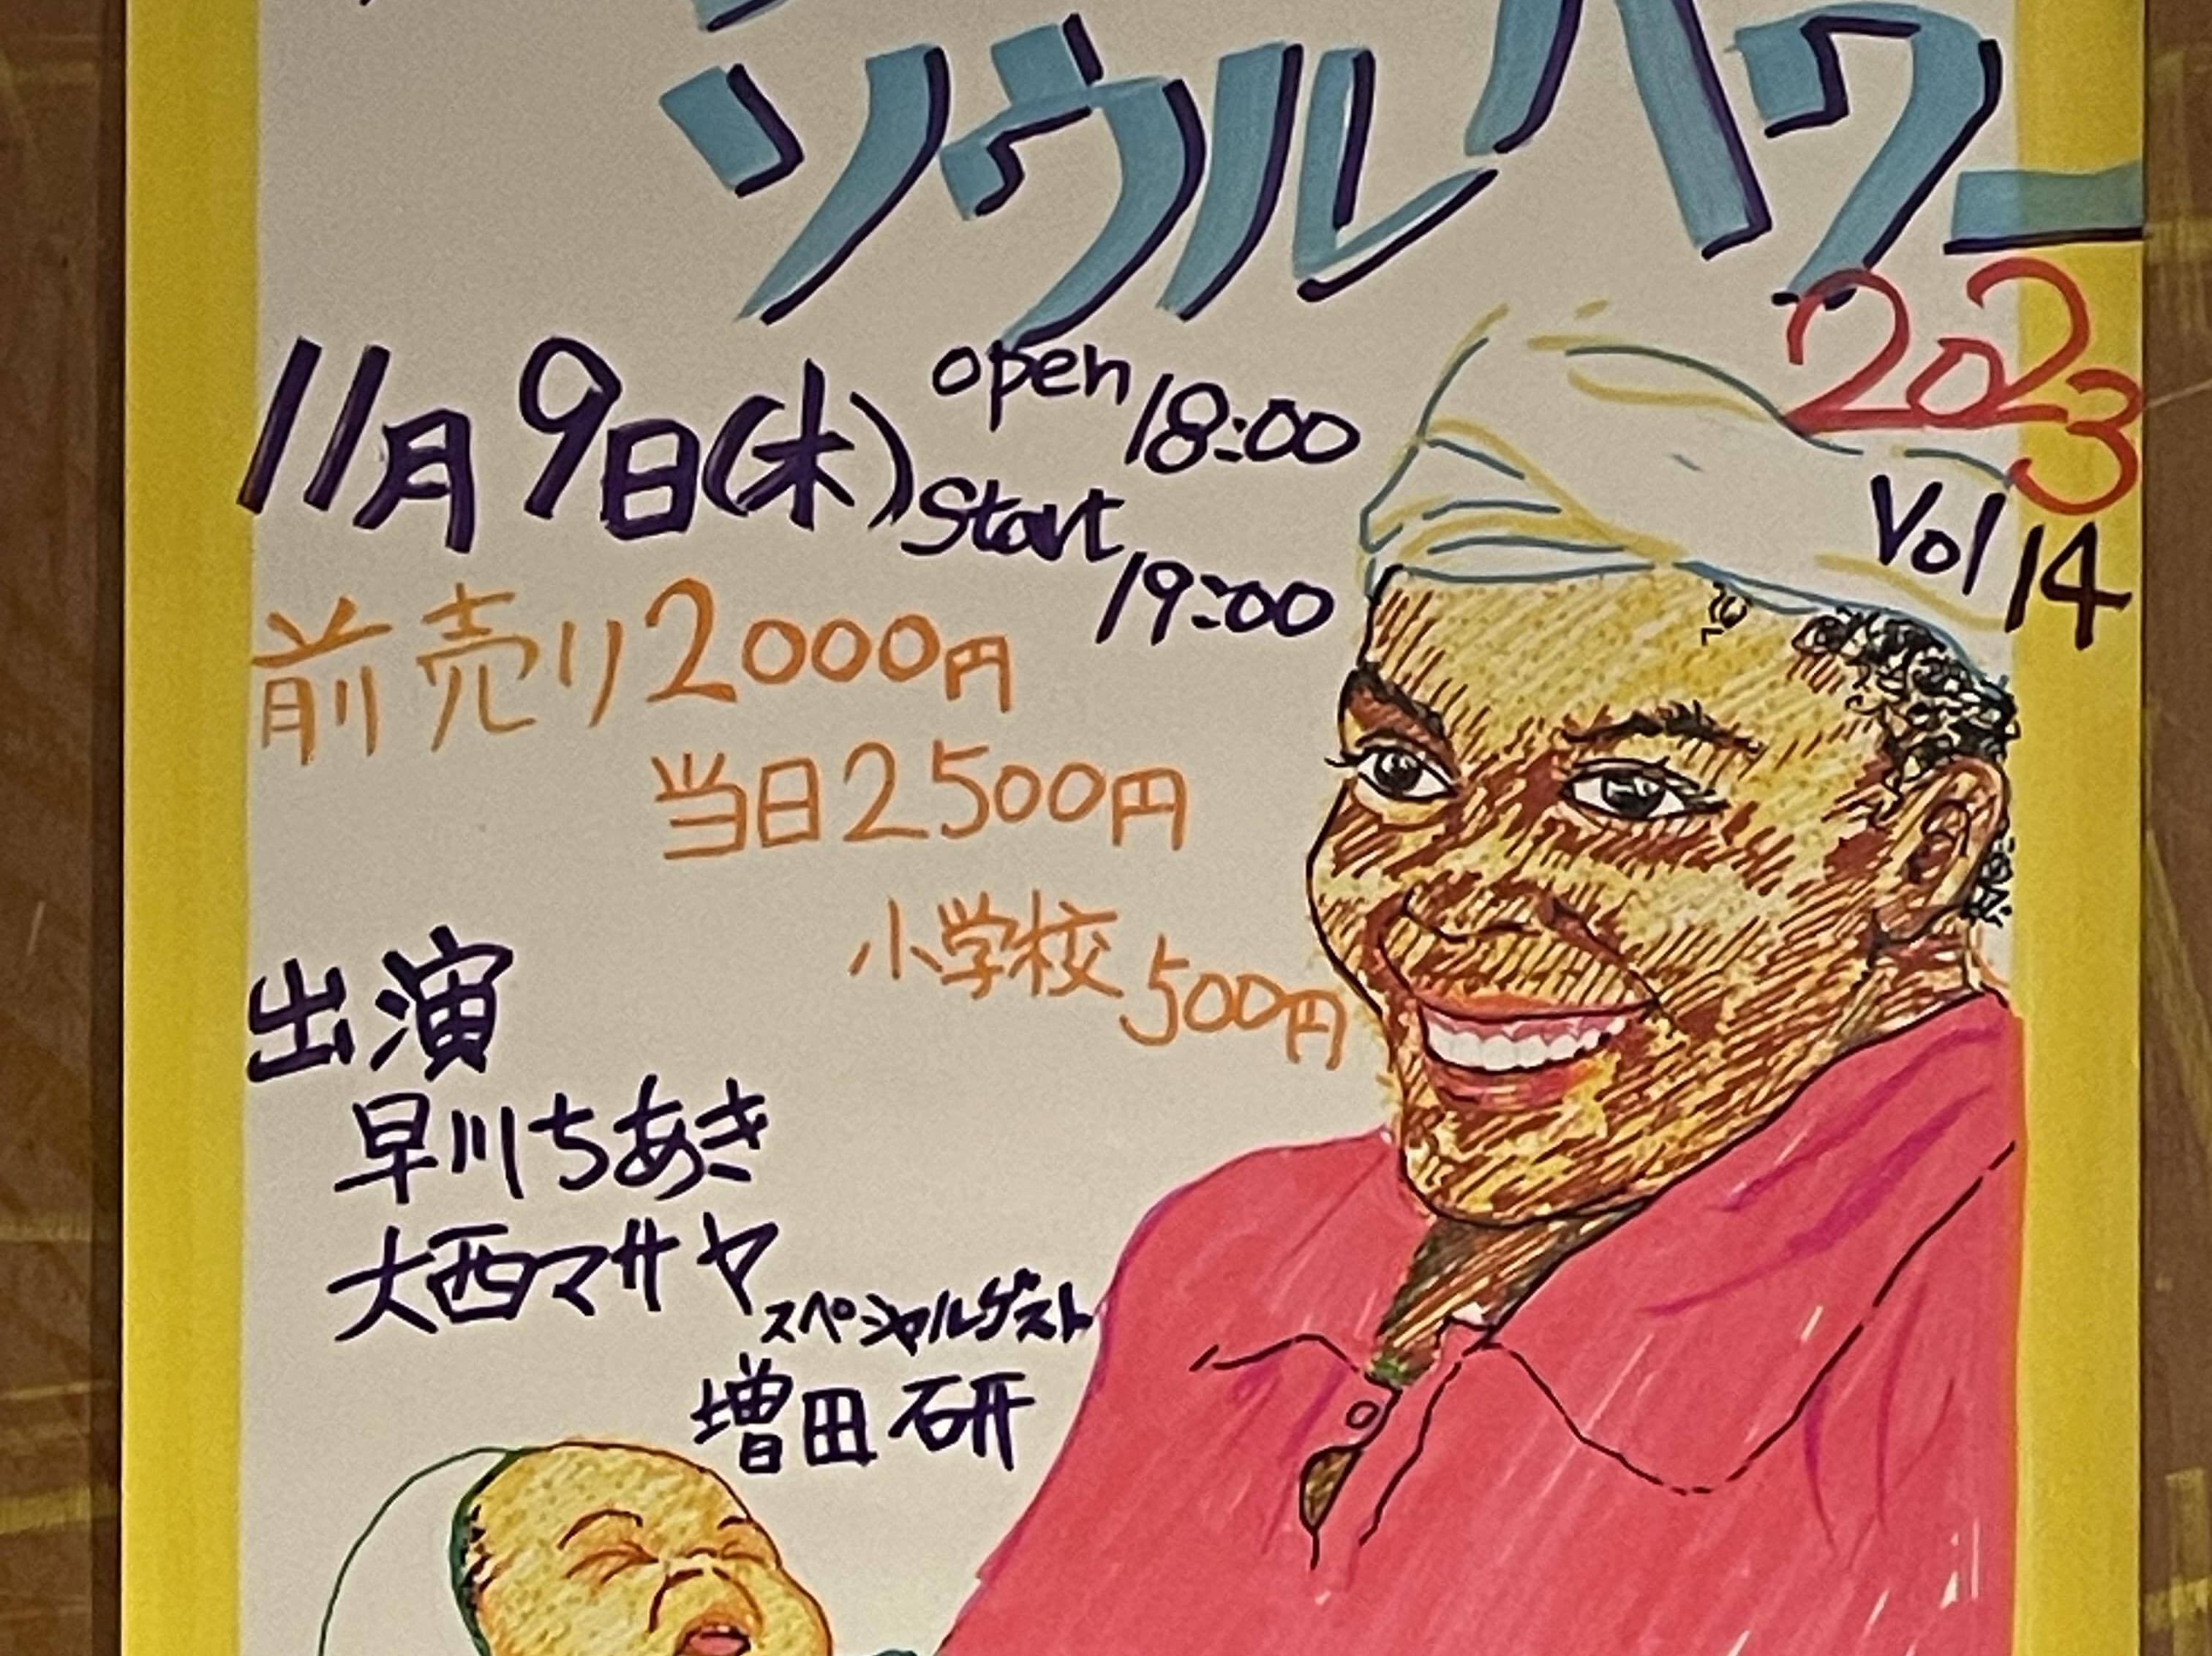 ソウルパワー
2023
11月9日(木) open 18:00
Start 19:00
Vol 14
前売り2000円
当日2500円
小学校500円
出演
早川ちあき
大西マサヤ
スペシャルゲスト
増田研